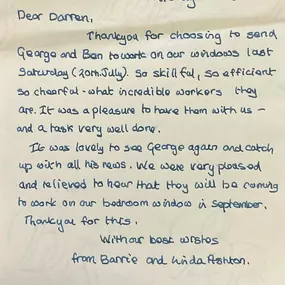 Dear Darren,
Thankyou for choosing to send
George and Ben to work on our windows last
Saturday (20th July). So skilful, so efficient
so cheerful - what incredible workers they
are. It was a pleasure to have them with us -
and a task very well done.
It was lovely to see George again and catch
up with all his news. We were very pleased
and relieved to hear that they will be coming
to work on our bedroom window in September.
Thankyou for this.
With our best wishes
from Barrie and Linda Ashton.